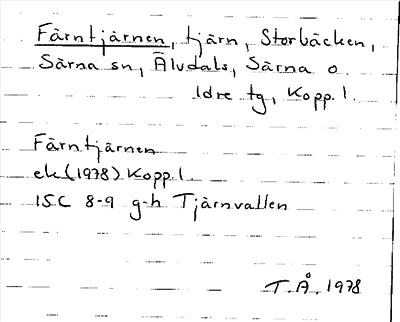 Färntjärnen, tjärn, Storbäcken,
Särna sn, Älvdals, Särna o
Idre tg, Kopp. l.
Färntjärnen
ek (1978) Kopp l.
15C 8-9 g-h Tjärnvallen
T.Å. 1978